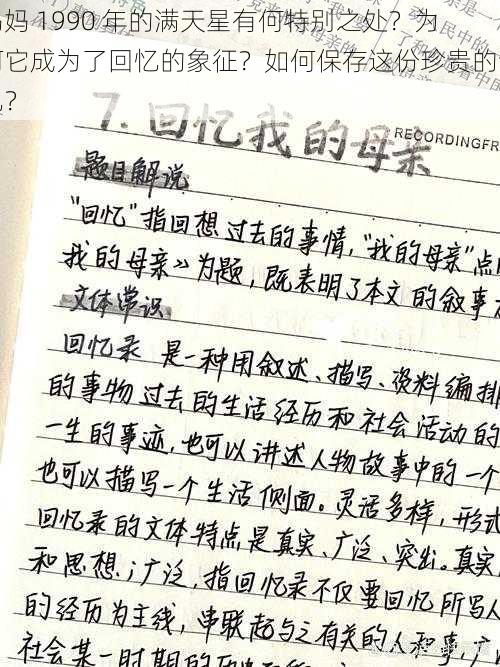 妈 1990 年的满天星有何特别之处？为
它成为了回忆的象征？如何保存这份珍贵的
？
7. 回忆我的母亲
RECORDINGFR
题目解说
“回忆”指回想过去的事情，“我的母亲”点
我的母亲》为题，既表明了本文的叙事
文体常识
回忆录 是一种用叙述、描写、资料编排
的事物过去的生活经历和社会活动的
一生的事迹，也可以讲述人物故事中的一个
也可以描写一个生活侧面。灵活多样，形式
回忆录的文体特点是真实、广泛、突出。真实
和思想；广泛，指回忆录不仅要回忆所写人
的经历为主线，串联起与之有关的人和事，
社会某一时期的